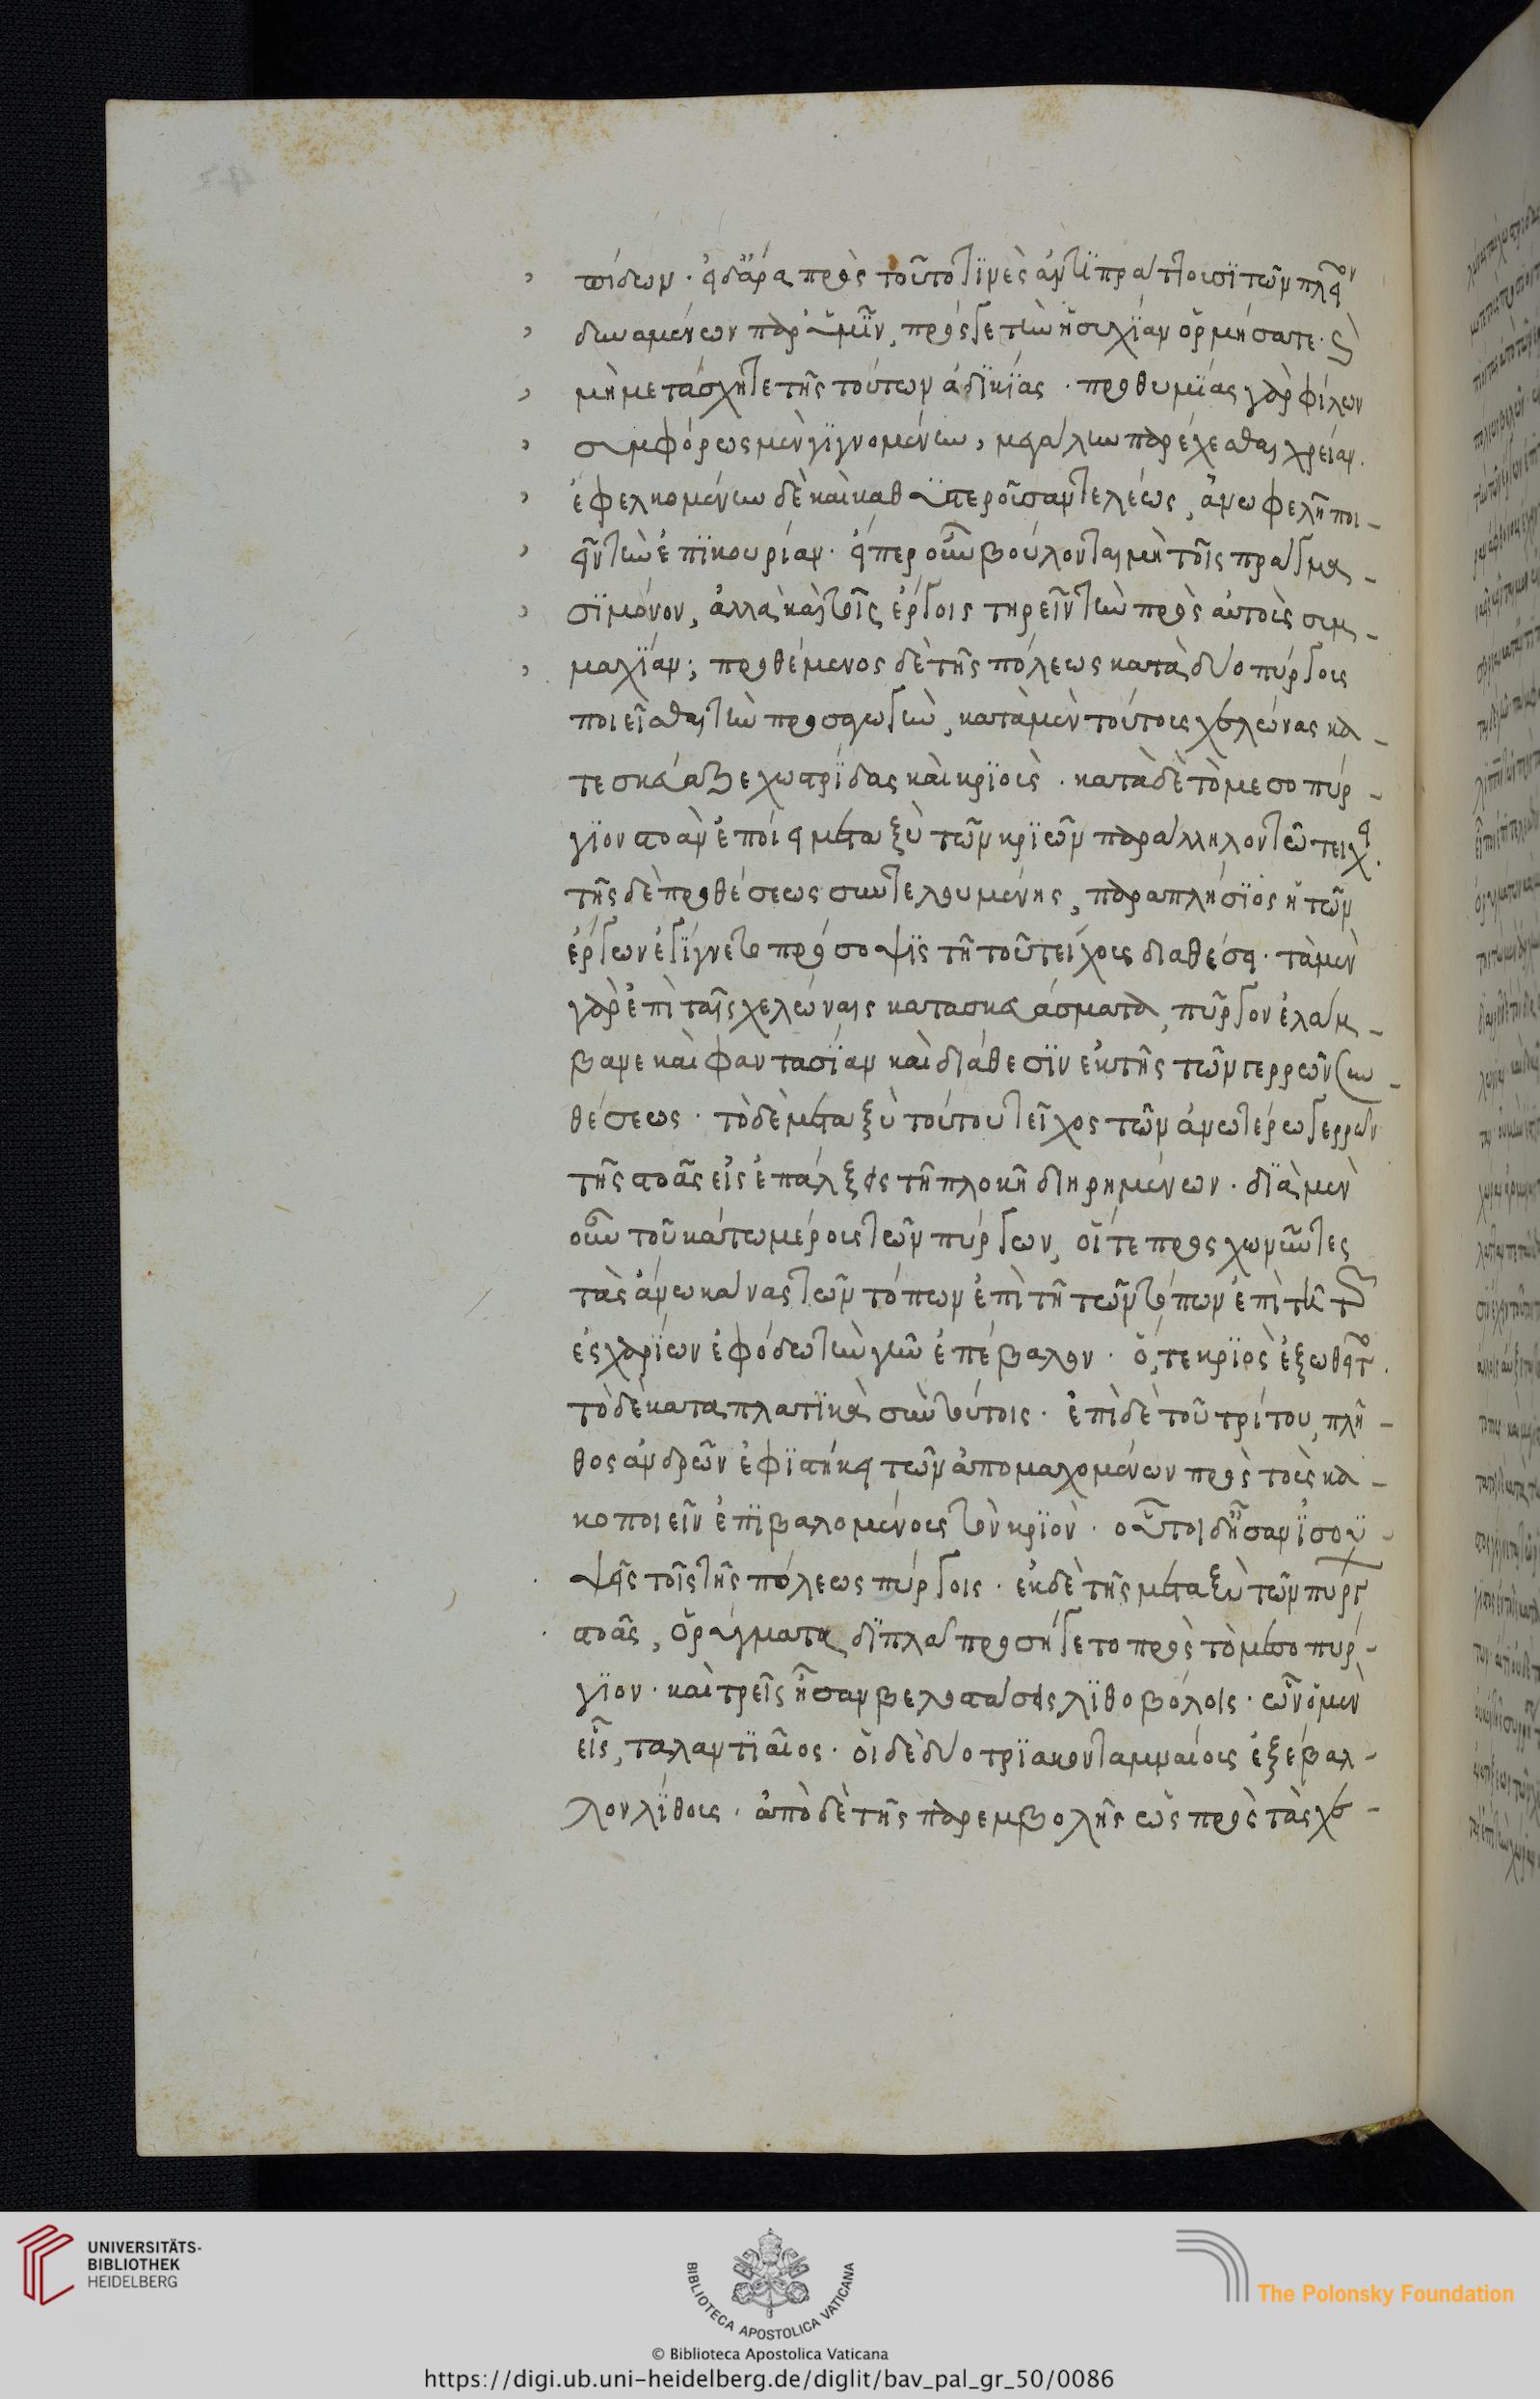 πίδων. εἰ δ' ἄρα πρὸς τοῦτο τινὲς ἀντιπράττουσι τῶν πλεῖον
δυναμένων παρ' ὑμῖν, πρός γε τὴν ἡσυχίαν ὁρμήσατε. καὶ
μὴ μετάσχητε τῆς τούτων ἀδικίας. προθυμίας γὰρ φίλων
συμφόρως μὲν γιγνομένων, μεγάλην παρέχεσθαι χρείαν.
ἐφελκομένων δὲ καὶ καθυπεροισαντελέως, ἀνωφελῆ ποι-
εῖν τὴν ἐπικουρίαν. εἴπερ οὖν βούλονται μὴ τοῖς γράμμα-
σι μόνον, ἀλλὰ καὶ τοῖς ἔργοις τηρεῖν τὴν πρὸς αὐτοὺς συμ-
μαχίαν; προθέμενος δὲ τῆς πόλεως κατὰ δύο πύργους
ποιεῖσθαι τὴν προσαγωγὴν, κατὰ μὲν τούτους χελώνας κα-
τεσκεύαζε χωστρίδας καὶ κριοὺς. κατὰ δὲ τὸ μεσοπύρ-
γιον στοὰν ἐποίει μεταξὺ τῶν κριῶν παράλληλον τῷ τείχει.
τῆς δὲ προθέσεως συντελουμένης, παραπλήσιος ἡ τῶν
ἔργων ἐγίγνετο πρόσοψις τῇ τοῦ τείχους διαθέσει. τὰ μὲν
γὰρ ἐπὶ ταῖς χελώναις κατασκευάσματα, πύργον ἐλάμ-
βανε καὶ φαντασίαν καὶ διάθεσιν ἐκ τῆς τῶν γερρῶν συν-
θέσεως. τὸ δὲ μεταξὺ τούτου τεῖχος τῶν ἀνωτέρω γερρῶν
τῆς στοᾶς εἰς ἐπάλξεις τῇ πλοκῇ διῃρημένων. διὰ μὲν
οὖν τοῦ κάτω μέρους τῶν πύργων, οἵ τε προσχωννύντες
τὰς ἀνωμανας τῶν τόπων ἐπὶ τῇ τῶν τόπων ἐπὶ τῇ τῶν
ἐσχαρίων ἐφόδῳ τὴν γῆν ἐπέβαλον. ὅ, τε κριὸς ἐξωθεῖτο.
τὸ δὲ καταπλατικὰ σὺν τούτοις. ἐπὶ δὲ τοῦ τρίτου, πλῆ-
θος ἀνδρῶν ἐφιστήκει τῶν ἀπομαχομένων πρὸς τοὺς κα-
κοποιεῖν ἐπιβαλομένους τὸν κριὸν. οὗτοι δ' ἦσαν ἰσοϋ-
ψεῖς τοῖς τῆς πόλεως πύργοις. ἐκ δὲ τῆς μεταξὺ τῶν πύργων
στοᾶς, ὀρύγματα διπλᾶ προσήγετο πρὸς τὸ μεσοπύρ-
γιον. καὶ τρεῖς ἦσαν βελοστάσεις λιθοβόλοις. ὧν ὁ μὲν
εἷς, ταλαντιαῖος. οἱ δὲ δύο τριακονταμναίους ἐξέβαλ-
λον λίθους. ἀπὸ δὲ τῆς παρεμβολῆς ὡς πρὸς τὰς χε-
UNIVERSITÄTS-
BIBLIOTHEK
HEIDELBERG
BIBLIOTECA APOSTOLICA VATICANA
The Polonsky Foundation
© Biblioteca Apostolica Vaticana
https://digi.ub.uni-heidelberg.de/diglit/bav_pal_gr_50/0086